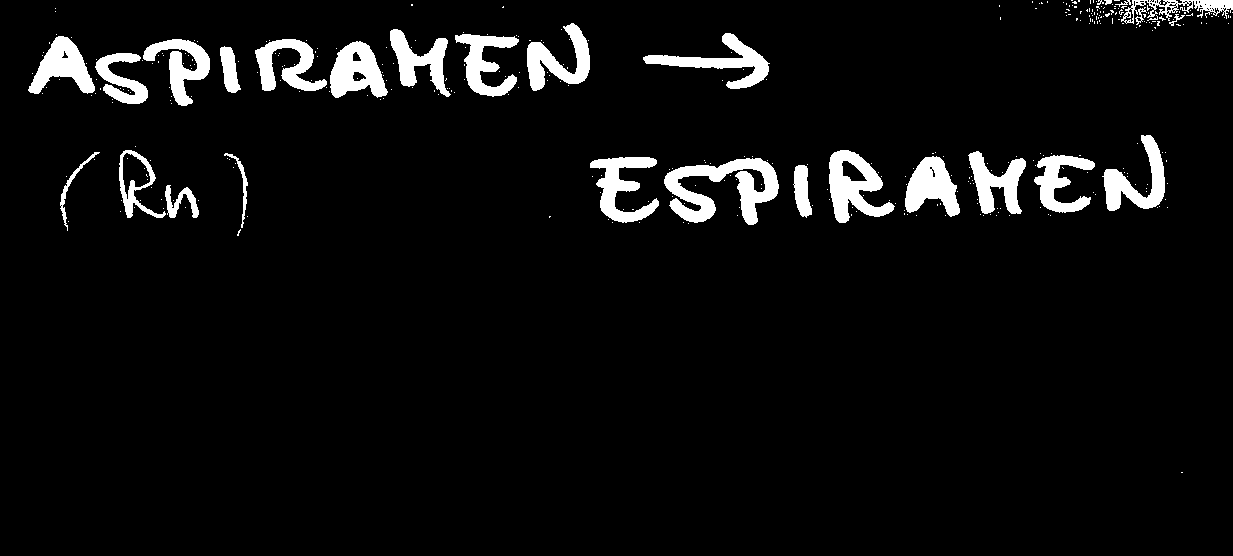 ASPIRAMEN →
(Rn) ESPIRAMEN